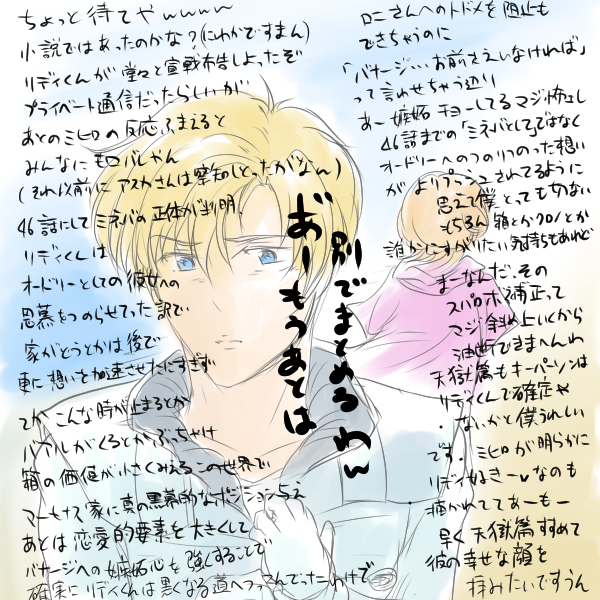 ちょっと待てやwwww
小説ではあったのかな?(にわかですまん)
リディくんが堂々と宣戦布告しよったぞ
プライベート通信だったらしいが
あとのミヒロの反応ふまえると
みんなにモロバレやん
(それ以前にアスカさんは察知しとったがなん)
46話にしてミネバの正体が判明、
リディくんは
オードリーとしての彼女への
思慕をつのらせてった訳で
家がどうとかは後で
更に想いを加速させたにすぎず
てか こんな時が止まるとか
バアルがくるとかぶっちゃけ
箱の価値が小さくみえるこの世界で
マーセナス家に真の黒幕的なポジション与え
あとは恋愛的要素を大きくして
バナージへの嫉妬心を強くすることで
確実にリディくんは黒くなる道へつっこんでったわけで
おーもうあとは
別でまとめるわw
ロニさんへのトドメを阻止も
できちゃうのに
「バナージ…お前さえいなければ」
って言わせちゃう辺り
あー嫉妬チョーしてるマジ怖えし
46話までの「ミネバとして」ではなく
オードリーへのつのりつのった想い
がよりプッシュされてるように
思えて僕とっても切ない
もちろん箱とかクロノとか
誰かにすがりたい気持ちもあれど
まーなんだ、その
スパロボ補正って
マジ斜め上いくから
油断できまへんわ
天獄篇もキーパーソンは
リディくんで確定や
・ないかと僕うれしい
です。ミヒロが明らかに
リディ好きーなのも
描かれててあーもー
早く天獄篇すすめて
彼の幸せな顔を
拝みたいですうん